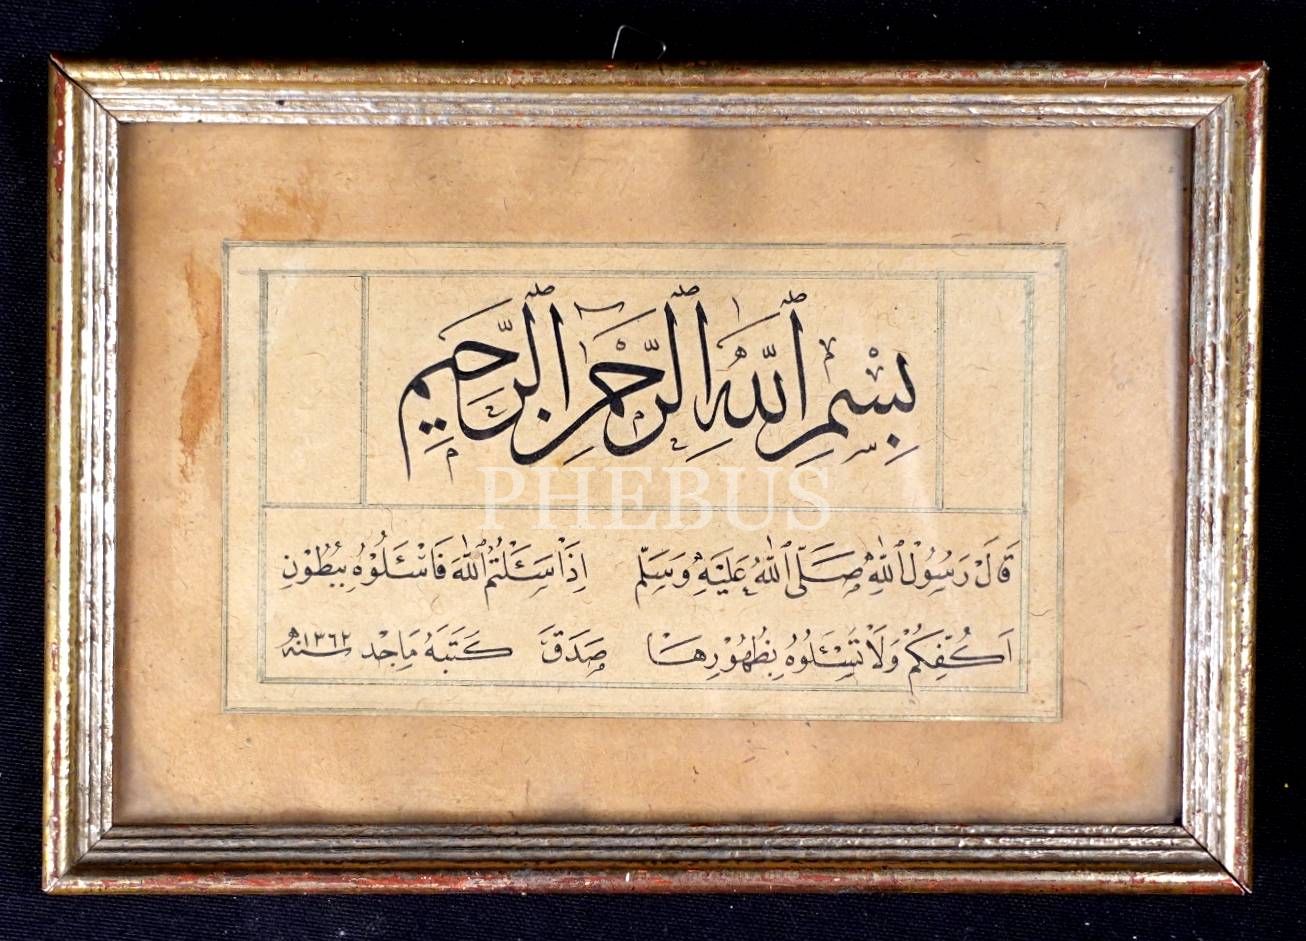 بِسْمِ اللّٰهِ الرَّحْمٰنِ الرَّحِيمِ
PHEBUS
قَالَ رَسُوْلُ اللّٰهِ صَلَّى اللّٰهُ عَلَيْهِ وَسَلَّمَ اِذَا سَئَلْتُمُ اللّٰهَ فَاسْئَلُوْهُ بِبُطُوْنِ
اَكُفِّكُمْ وَلَا تَسْئَلُوْهُ بِظُهُوْرِهَا صَدَقَ كَتَبَهُ مَاجْد سنه ١٣٦٢